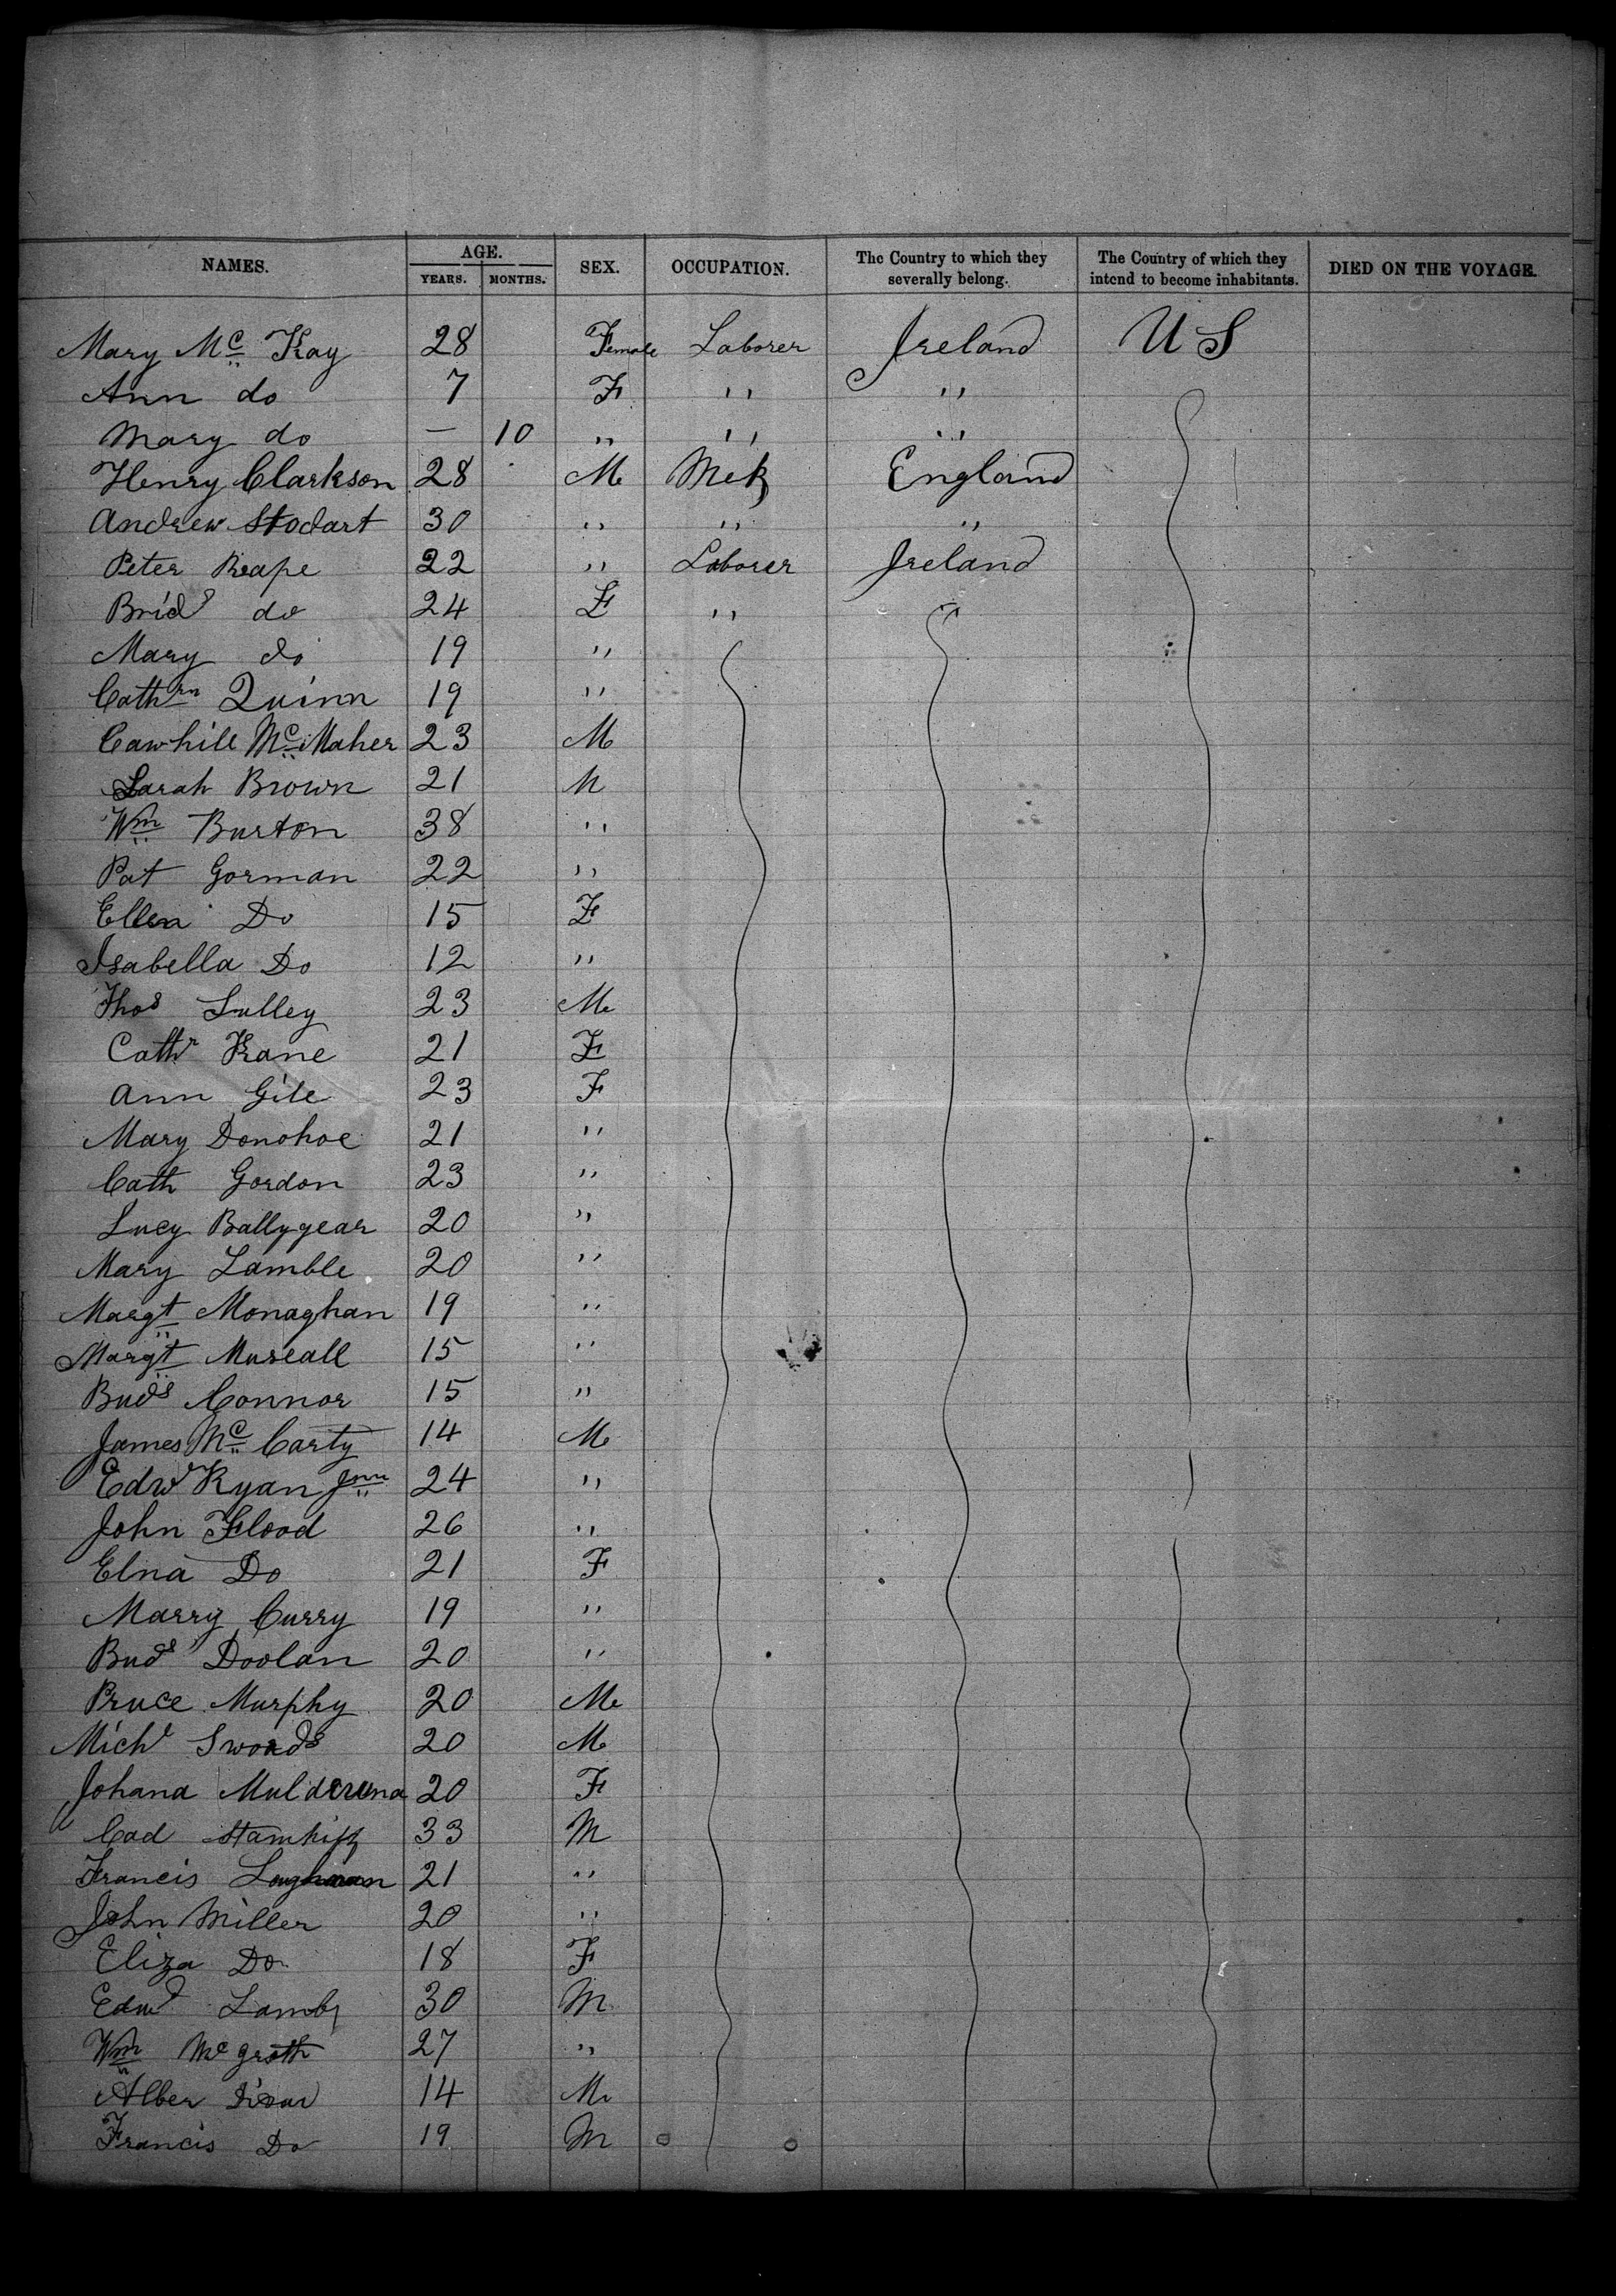 NAMES. AGE. YEARS. MONTHS. SEX. OCCUPATION. The Country to which they severally belong. The Country of which they intend to become inhabitants. DIED ON THE VOYAGE.
Mary Mc Kay 28 Female Laborer Ireland U S
Ann do 7 F " "
Mary do — 10 " " "
Henry Clarkson 28 M Mek England
Andrew Stodart 30 " " "
Peter Reape 22 " Laborer Ireland
Brid do 24 F "
Mary do 19 "
Cathrn Quinn 19 "
Cawhill McMaher 23 M
Sarah Brown 21 M
Wm Burton 38 "
Pat Gorman 22 "
Ellen Do 15 F
Isabella Do 12 "
Thos Lulley 23 M
Cathr Kane 21 F
Ann Gile 23 F
Mary Donohoe 21 "
Cath Gordon 23 "
Lucy Ballygear 20 "
Mary Lamble 20 "
Margt Monaghan 19 "
Margt Museall 15 "
Buds Connor 15 "
James Mc Carty 14 M
Edwd Ryan Jnn 24 "
John Flood 26 "
Elna Do 21 F
Marry Curry 19 "
Buds Doolan 20 "
Pruce Murphy 20 M
Michl Swords 20 M
Johana 20 F
Cad 33 M
Francis 21 "
John Miller 20 "
Eliza Do 18 F
Edwd Lamb 30 M
Wm Mc grath 27 "
Alber 14 M
Francis Do 19 M